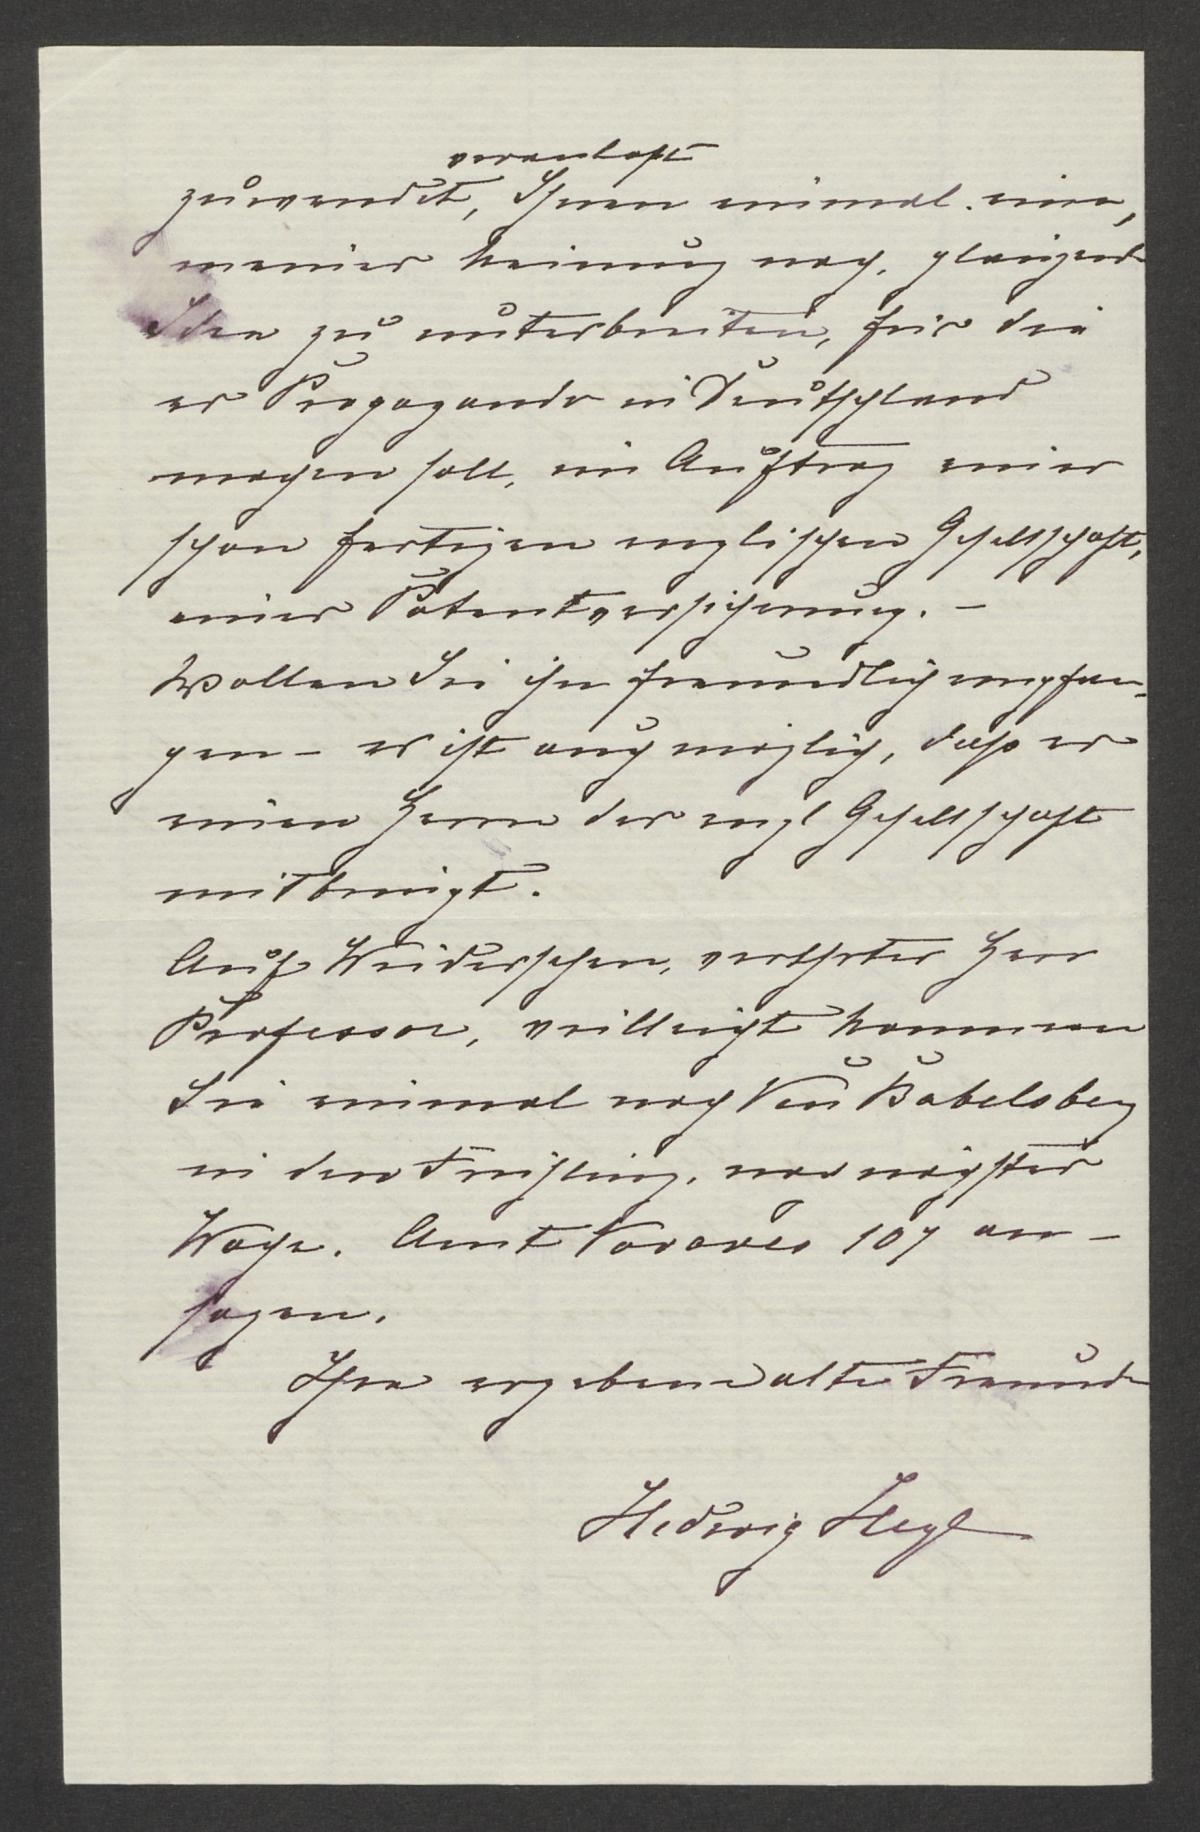 veranlaßt
zuwendet, Ihnen einmal eine,
meiner Meinung nach, glänzende
Idee zu unterbreiten, für die
er Propaganda in Deutschland
machen soll, im Auftrag einer
schon fertigen englischen Gesellschaft,
einer Patentversicherung. –
Wollen Sie ihn freundlich empfan-
gen – er ist auch möglich, daß er
einen Herrn der engl Gesellschaft
mitbringt.
Auf Wiedersehen, verehrter Herr
Professor, vielleicht kommen
Sie einmal nach Neu Babelsberg
in den Frühling, nur nächster
Woche. Amt Nowawes 107 an-
sagen.
Ihre ergebene alte Freundin
Hedwig Heyl